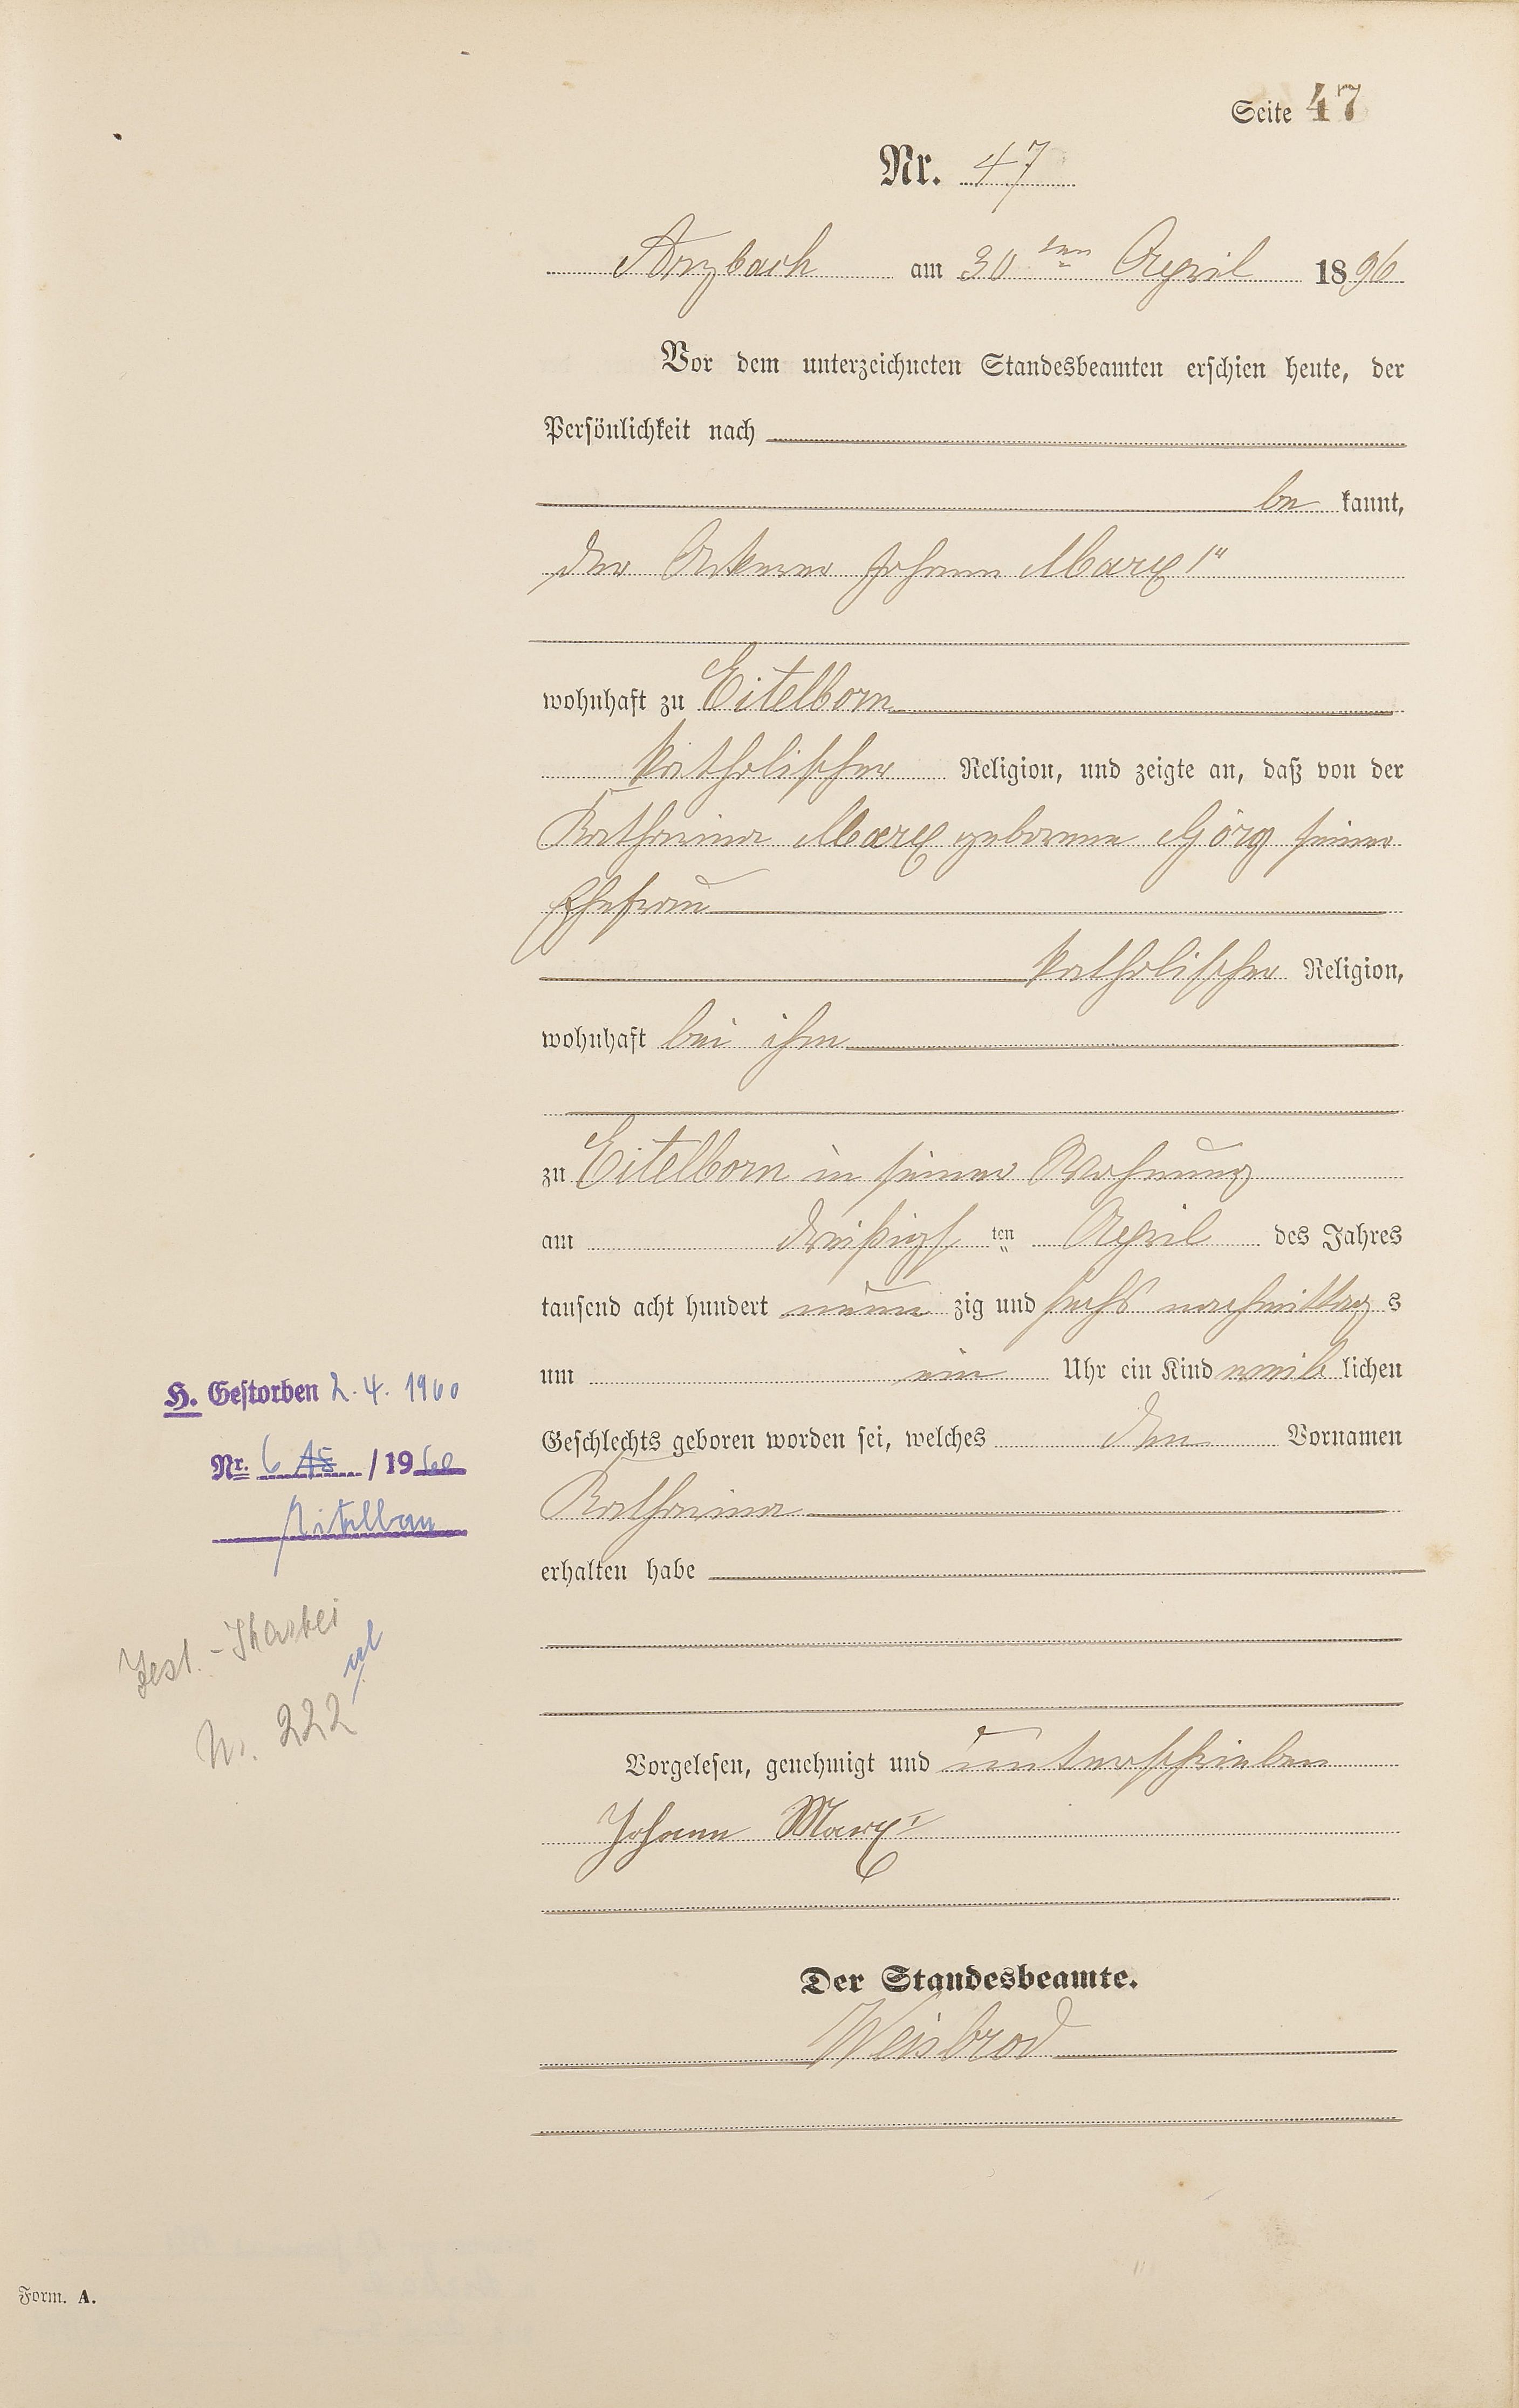 Seite 47
Nr. 47
Arzbach am 30ten April 1896
Vor dem unterzeichneten Standesbeamten erschien heute, der
Persönlichkeit nach
be kannt,
der Ackerer Johann Marx 1"
wohnhaft zu Eitelborn
katholischer Religion, und zeigte an, daß von der
Katharina Marx geborene Görg seiner
Ehefrau
katholischer Religion,
wohnhaft bei ihm
zu Eitelborn in seiner Wohnung
am dreißigs ten April des Jahres
tausend acht hundert neun zig und sechs nachmittag s
um ein Uhr ein Kind weib lichen
Geschlechts geboren worden sei, welches den Vornamen
Katharina
erhalten habe
Vorgelesen, genehmigt und unterschrieben
Johann Marx I
Der Standesbeamte.
Weisbrod
H. Gestorben 2. 4. 1960
Nr. 6 15 / 1960
Eitelborn
Test.-Kartei
Nr. 222
Form. A.